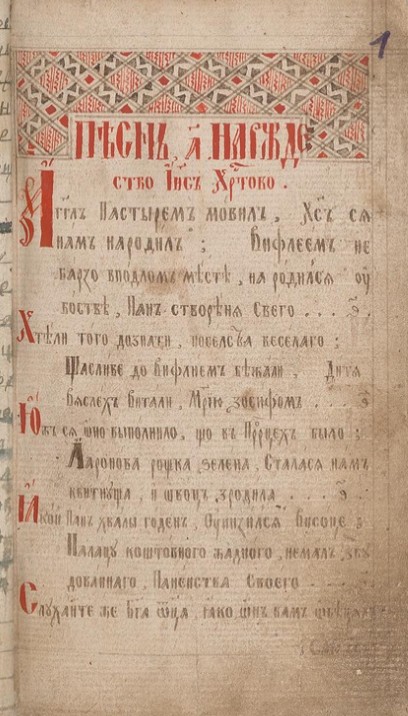 1
Пѣснь, а҃ Нарожде
ство Іи҃съ Хр҃тово.
Агг҃лъ Пастыремъ мовилъ, Хс҃ъ ся
намъ народилъ; Вифлеемъ не
барзо вподломъ мѣстѣ, народился оу
бостве, Панъ створѣня Своего ... э.
Хтѣли того дознати, посельства веселаго:
Щасливе до Вифлиемъ бѣжали, Дитя
вяслехъ витали, Мр҃ію зосифомъ ... э
Южъ ся оно выполнило, що въ Пр҃рцехъ было:
Ааронова рощка зелена, Сталася намъ
квитнуща, и швоцъ зродила ... э.
Якои Панъ хвалы годенъ, Оунизился Высоце:
Палацу коштовного жадного, немалъ збу
дованнаго, Паненства Своего ...
Слухаите же Бг҃а Ѿца, яко онъ вамъ